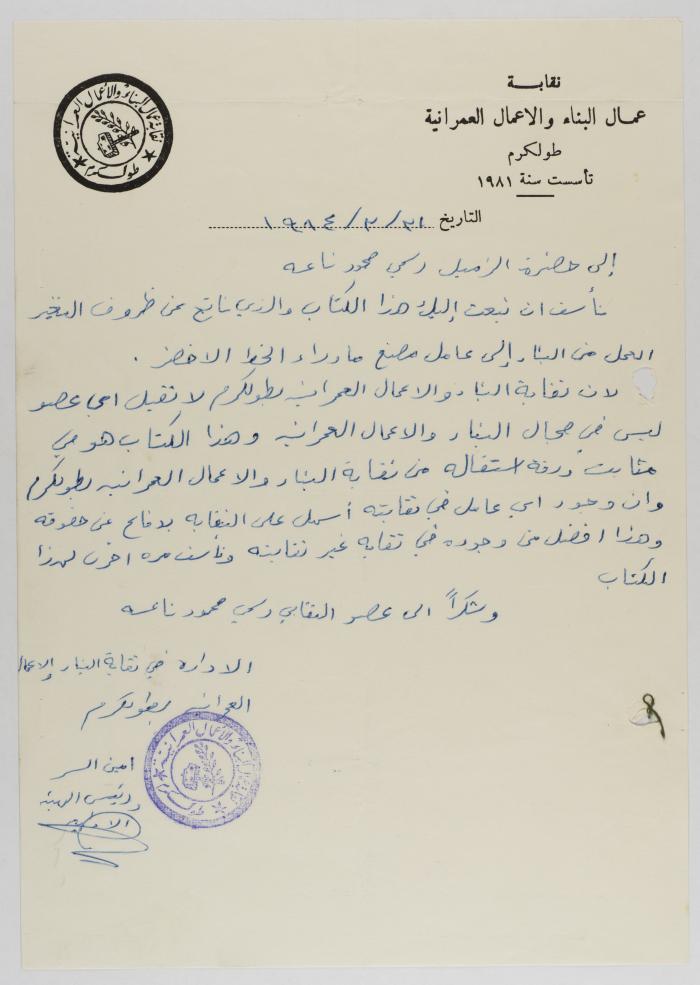 نقابة
عمال البناء والاعمال العمرانية
طولكرم
تأسست سنة ١٩٨١
نقابة عمال البناء والأعمال العمرانية
طولكرم
التاريخ ٣١/٣/١٩٨٤
إلى حضرة الزميل رسمي محمود ناعسه
نأسف ان نبعث إليك هذا الكتاب والذي ناتج عن ظروف التغير
العمل من البناء إلى عامل مصنع ماوراء الخط الاخضر.
لان نقابة البناء والاعمال العمرانيه بطولكرم لا تقبل اي عضو
ليس في مجال البناء والاعمال العمرانيه وهذا الكتاب هو في
مثابت ورقة استقاله من نقابة البناء والاعمال العمرانيه بطولكرم
وان وجود اي عامل في نقابته أسهل على النقابه بدفاع عن حقوقه
وهذا افضل من وجوده في نقابه غير نقابته ونأسف مره اخرى لهذا
الكتاب
وشكراً الى عضو النقابي رسمي محمود ناعسه
الاداره في نقابة البناء والاعمال
العمرانيه بطولكرم
نقابة عمال البناء والأعمال العمرانية
طولكرم
امين السر
ورئيس الهيئه
الاداريه